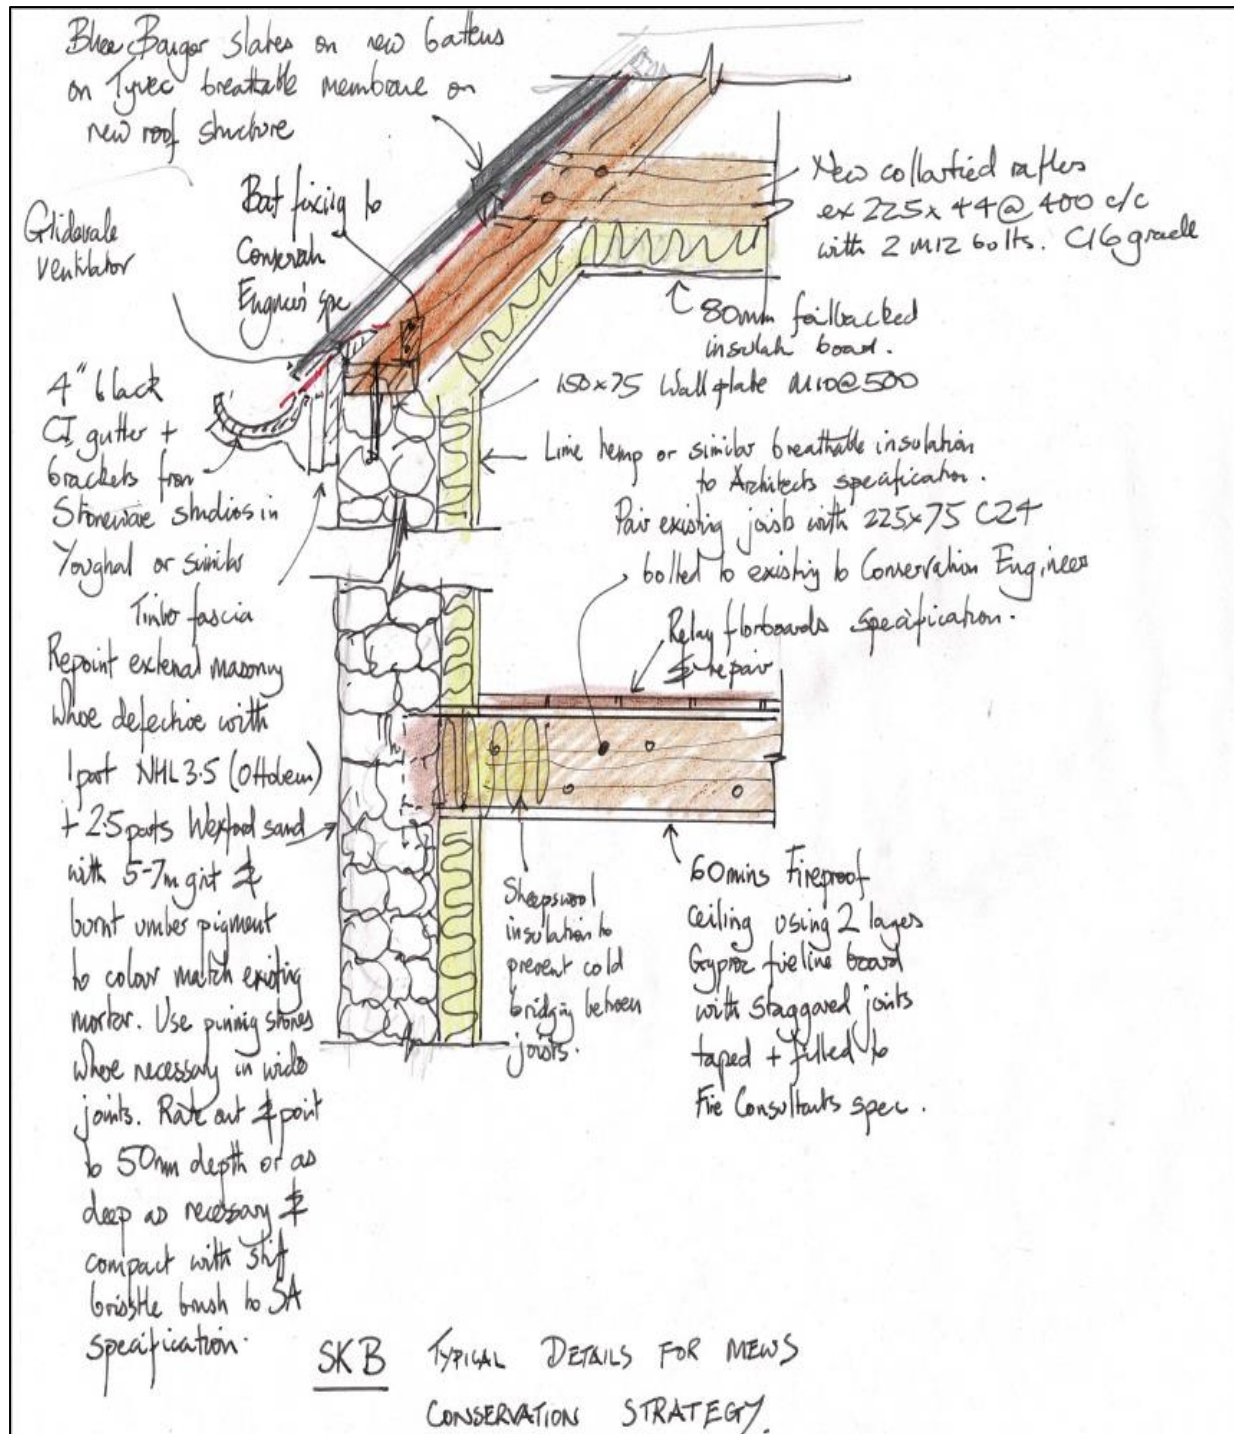 Blue Bangor slates on new battens
on Tyvec breathable membrane on
new roof structure
Glidevale
ventilator
Bat fixing to
Conservatn
Engineer's spec
New collartied rafters
ex 225 x 44 @ 400 c/c
with 2 M12 bolts. C16 grade
80mm foilbacked
insulatn board.
150x75 Wallplate M10@500
4" black
CI gutter +
brackets from
Stoneware studios in
Youghal or similar
Timber fascia
Lime hemp or similar breathable insulation
to Architects specification.
Pair existing joists with 225x75 C24
bolted to existing to Conservation Engineer
specification.
Relay floorboards
& repair
Repoint external masonry
where defective with
1 part NHL 3.5 (Otterbein)
+ 2.5 parts Wexford sand
with 5-7m grit &
burnt umber pigment
to colour match existing
mortar. Use pinnig stones
where necessary in wide
joints. Rake out & point
to 50mm depth or as
deep as necessary &
compact with stiff
brisstle brush to SA
specification.
Sheepswool
insulation to
prevent cold
bridging between
joists.
60mins Fireproof
Ceiling using 2 layers
Gyproc fireline board
with staggared joints
taped + filled to
Fire Consultants spec.
SKB TYPICAL DETAILS FOR MEWS
CONSERVATION STRATEGY.